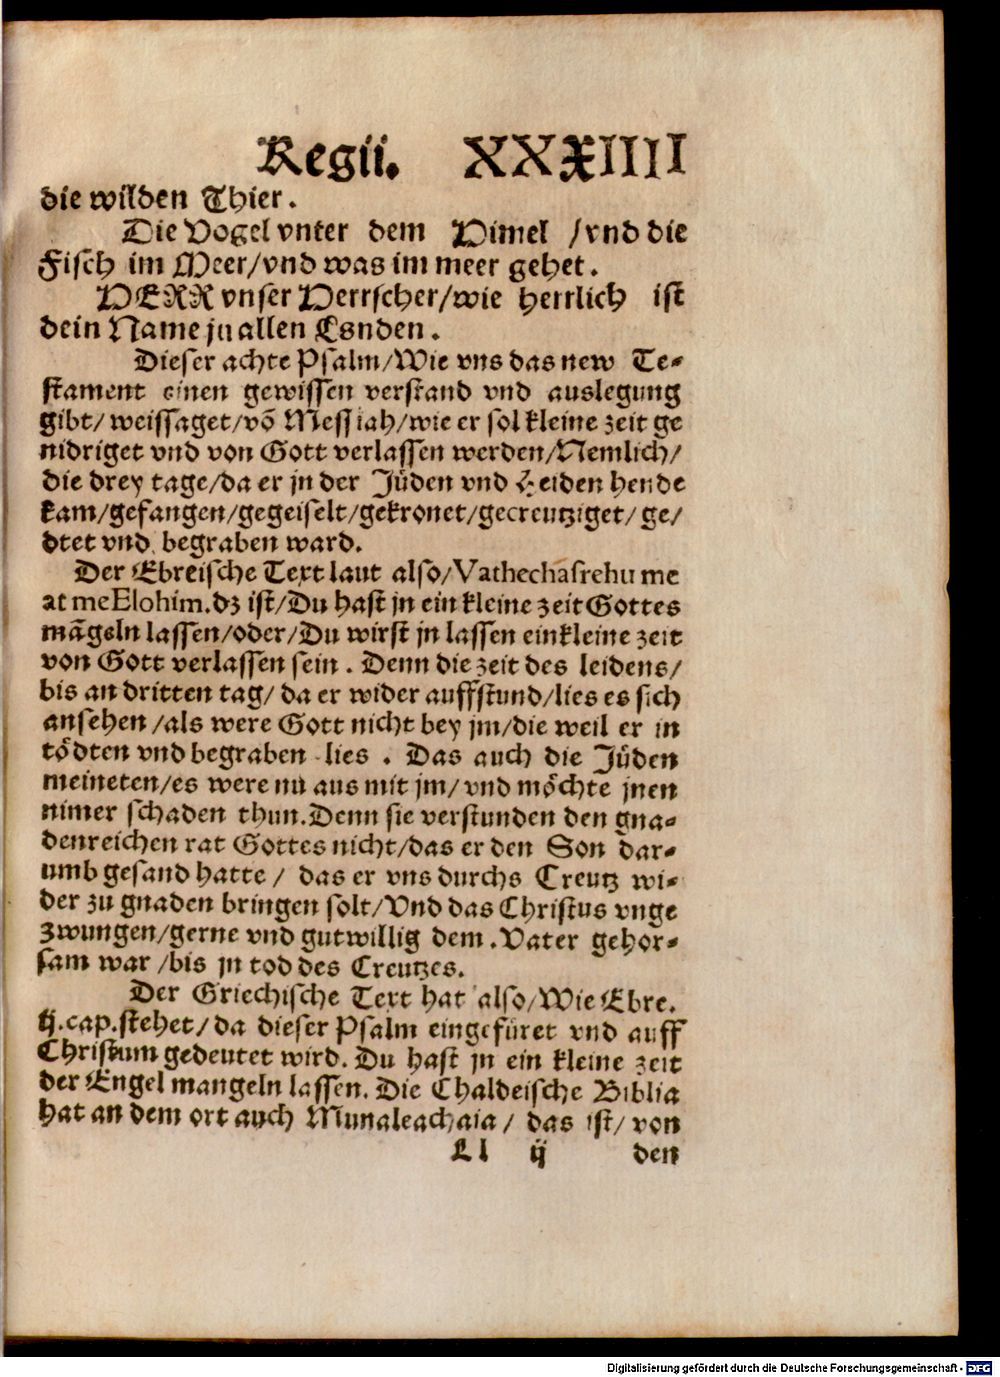 Regii. XXXIIII
die wilden Thier.
Die Vogel vnter dem Himel /vnd die
Fisch im Meer/vnd was im meer gehet.
HERR vnser Herrscher/wie herrlich ist
dein Name jn allen Lsnden.
Dieser achte Psalm/Wie vns das new Te-
stament einen gewissen verstand vnd auslegung
gibt/weissaget/võ Messiah/wie er sol kleine zeit ge
nidriget vnd von Gott verlassen werden/Nemlich/
die drey tage/da er jn der Jüden vnd Heiden hende
kam/gefangen/gegeiselt/gekronet/gecreutziget/ge/
dtet vnd begraben ward.
Der Ebreische Text laut also/Vathechasrehu me
at meElohim.dz ist/Du hast jn ein kleine zeit Gottes
mãgeln lassen/oder/Du wirst jn lassen einkleine zeit
von Gott verlassen sein. Denn die zeit des leidens/
bis an dritten tag/da er wider auffstund/lies es sich
ansehen/als were Gott nicht bey jm/die weil er jn
tödten vnd begraben lies. Das auch die Jüden
meineten/es were nu aus mit jm/vnd möchte jnen
nimer schaden thun.Denn sie verstunden den gna-
denreichen rat Gottes nicht/das er den Son dar-
umb gesand hatte/ das er vns durchs Creutz wi-
der zu gnaden bringen solt/Vnd das Christus vnge
zwungen/gerne vnd gutwillig dem.Vater gehor-
sam war/bis jn tod des Creutzes.
Der Griechische Text hat also/Wie Ebre.
ij.cap.stehet/da dieser Psalm eingefüret vnd auff
Christum gedeutet wird. Du hast jn ein kleine zeit
der Engel mangeln lassen. Die Chaldeische Biblia
hat an dem ort auch Mimaleachaia/ das ist/von
Ll ij den
Digitalisierung gefördert durch die Deutsche Forschungsgemeinschaft - DFG